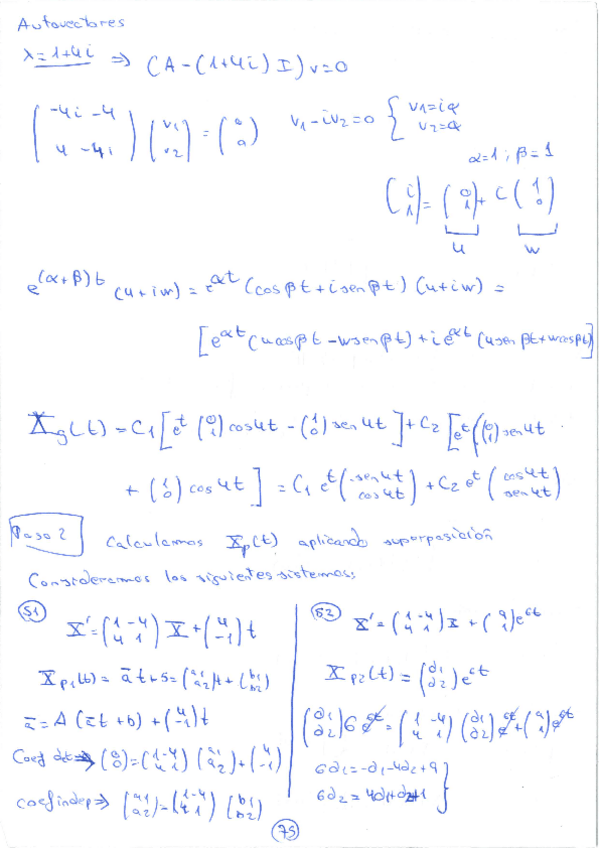 Autovectores
λ=1+4i ⇒ (A-(1+4i) I) v=0
(-4i -4 / 4 -4i) (v1 / v2) = (0 / 0) v1-iv2=0 { v1=iα / v2=α
α=1 ; β=1
(i / 1) = (0 / 1) + i (1 / 0)
u w
e^(α+β)t (u+iw) = e^αt (cosβt + i senβt) (u+iw) =
[e^αt (ucosβt - wsenβt) + i e^αt (usenβt + wcosβt)]
Xg(t) = C1 [e^t (0 / 1) cos4t - (1 / 0) sen4t] + C2 [e^t ((0 / 1) sen4t
+ (1 / 0) cos4t] = C1 e^t (-sen4t / cos4t) + C2 e^t (cos4t / sen4t)
Paso 2 Calculamos Xp(t) aplicando superposición
Consideramos los siguientes sistemas:
S1
X' = (1 -4 / 4 1) X + (4 / -1) t
Xp1(t) = āt + b = (a1 / a2) t + (b1 / b2)
ā = A (āt + b) + (4 / -1) t
Coef de t ⇒ (0 / 0) = (1 -4 / 4 1) (a1 / a2) + (4 / -1)
coef indep ⇒ (a1 / a2) = (1 -4 / 4 1) (b1 / b2)
S2
X' = (1 -4 / 4 1) X + (9 / 1) e^6t
Xp2(t) = (d1 / d2) e^6t
(d1 / d2) 6 e^6t = (1 -4 / 4 1) (d1 / d2) e^6t + (9 / 1) e^6t
6d1 = -d1 -4d2 + 9
6d2 = 4d1 + d2 + 1 }
75